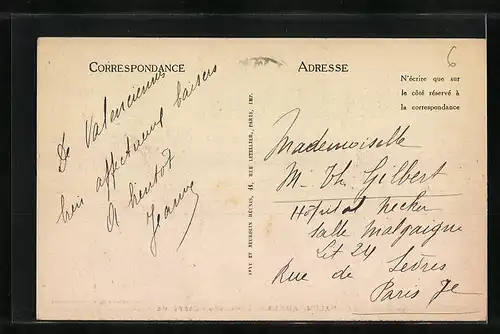 CORRESPONDANCE
De Valenciennes
bien affectueux baisers
A bientôt
Jeanne
LEVY ET NEURDEIN RÉUNIS, 44, RUE LETELLIER, PARIS, IMP.
ADRESSE
6
N'écrire que sur
le côté réservé à
la correspondance
Mademoiselle
M. Th. Gilbert
Hôpital Necker
Salle Malgaigne
Lit 24
Rue de Sèvres
Paris 7e